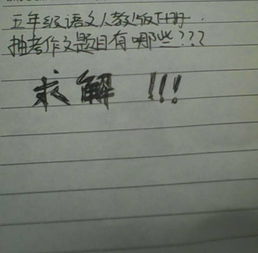 五年级语文人教版下册.
抽考作文题目有哪些???
求解!!!